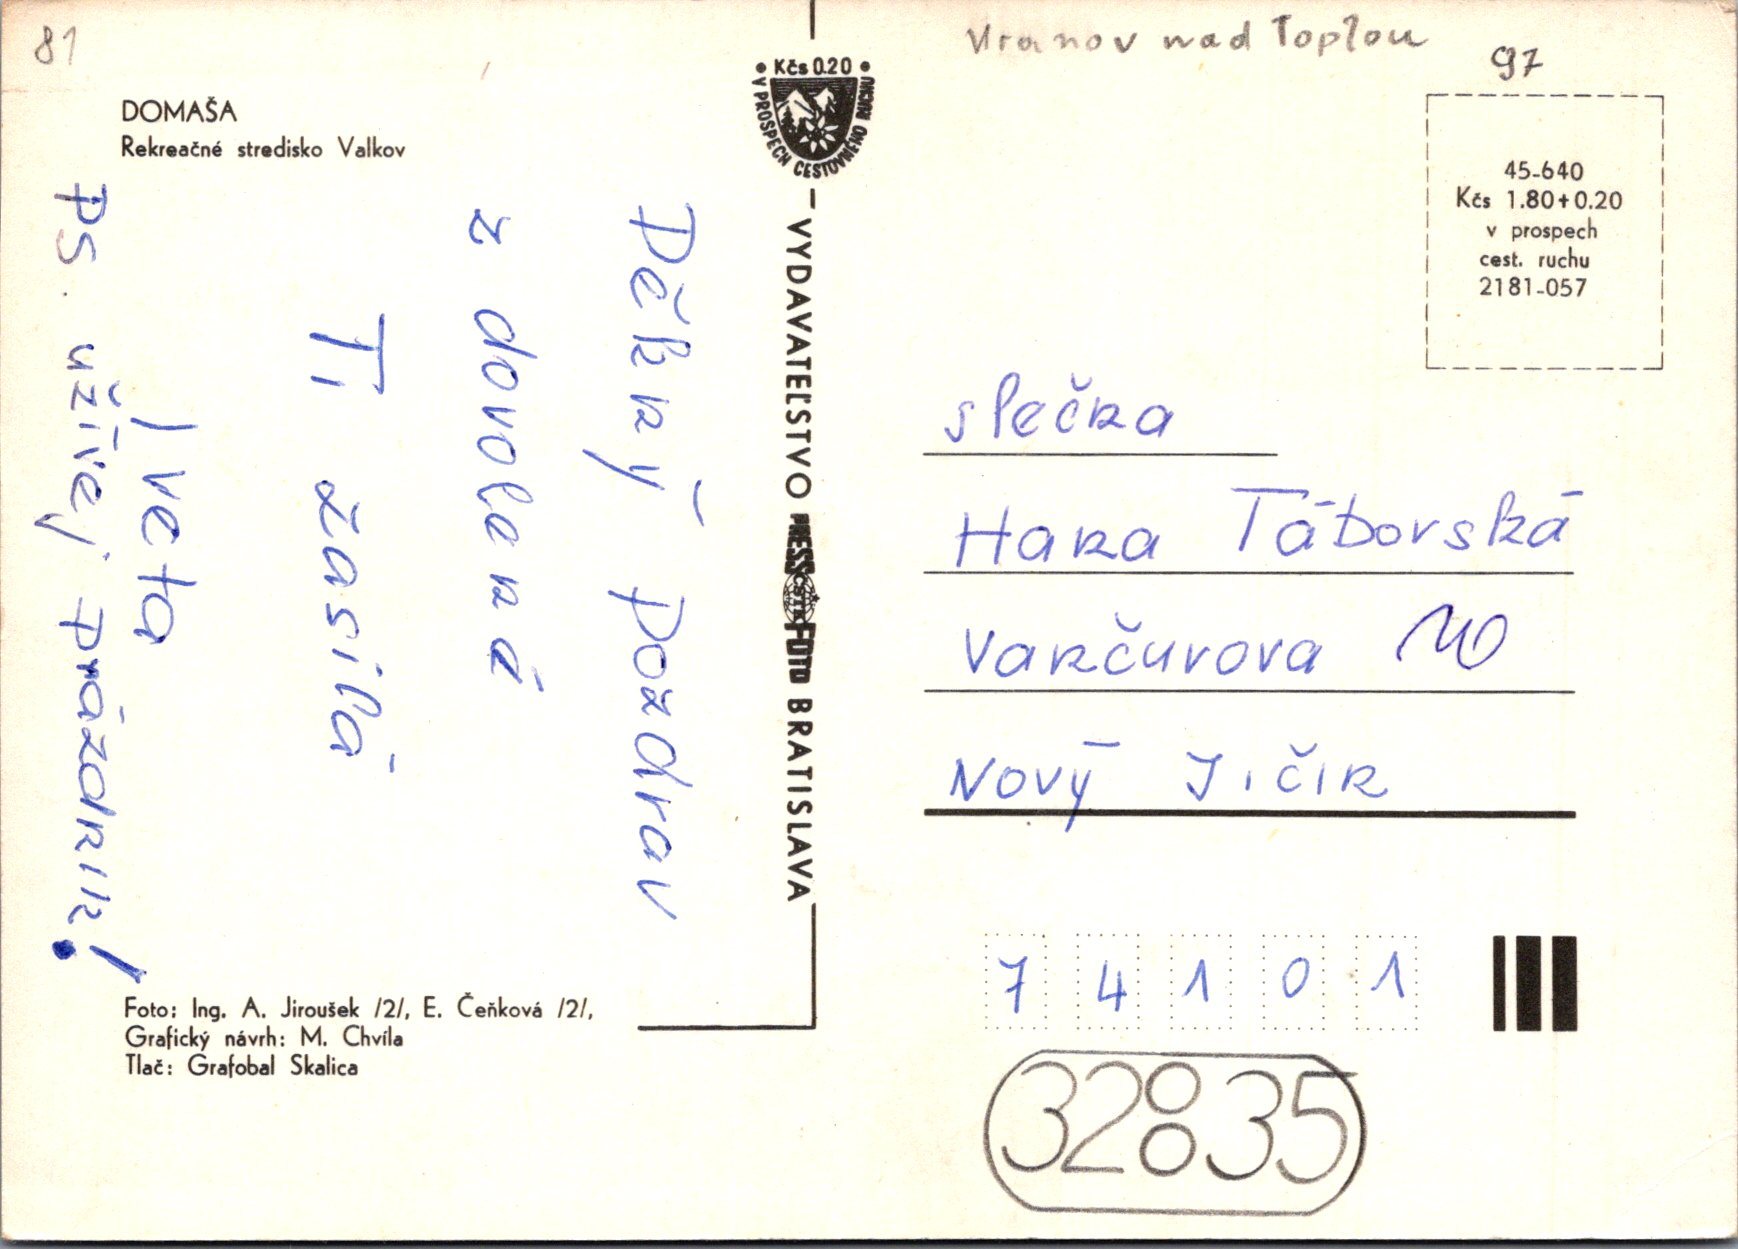 81
Vranov nad Topľou
97
DOMAŠA
Rekreačné stredisko Valkov
• Kčs 0.20 •
V PROSPECH CESTOVNÉHO RUCHU
45-640
Kčs 1.80+0.20
v prospech
cest. ruchu
2181-057
Pěkný pozdrav
z dovolené
Ti zasílá
Iveta
PS. užívej prázdnin!
VYDAVATEĽSTVO PRESSFOTO BRATISLAVA
ČSTK
slečna
Hana Táborská
Vančurova
Nový Jičín
74101
32835
Foto: Ing. A. Jiroušek /2/, E. Čeňková /2/,
Grafický návrh: M. Chvíla
Tlač: Grafobal Skalica